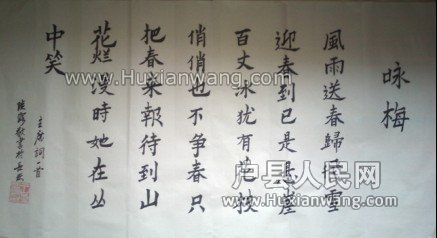 咏梅
風雨送春歸飛雪
迎春到已是悬崖
百丈冰犹有花枝
俏俏也不争春只
把春来報待到山
花烂漫時她在丛
中笑
主席詞一首
www.Huxianwang.com
www.Huxianwang.com
www.Huxianwang.com
户县人民网